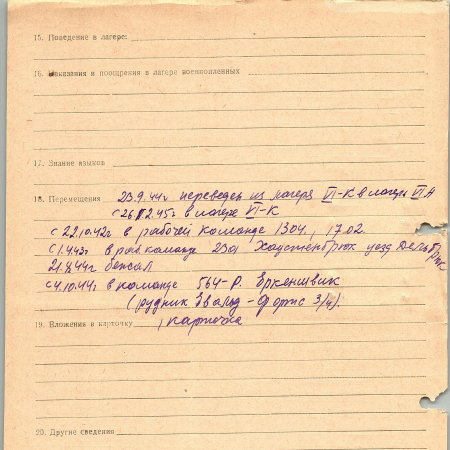 15. Поведение в лагере:
16. Наказания и поощрения в лагере военнопленных
17. Знание языков
18. Перемещения 23.9.44г переведен из лагеря VI-К в лагерь VI А
с 26.2.45г в лагере VI-К
с 22.10.42г в рабочей команде 1304, 17.02
с 1.4.43г в раб. команде 2301 уезд
21.8.44г бежал
с 4.10.44г в команде 564-Р. Эркеншвик
(рудник Эвальд - Фортс 3/4).
19. Вложения в карточку 1 карточка
20. Другие сведения